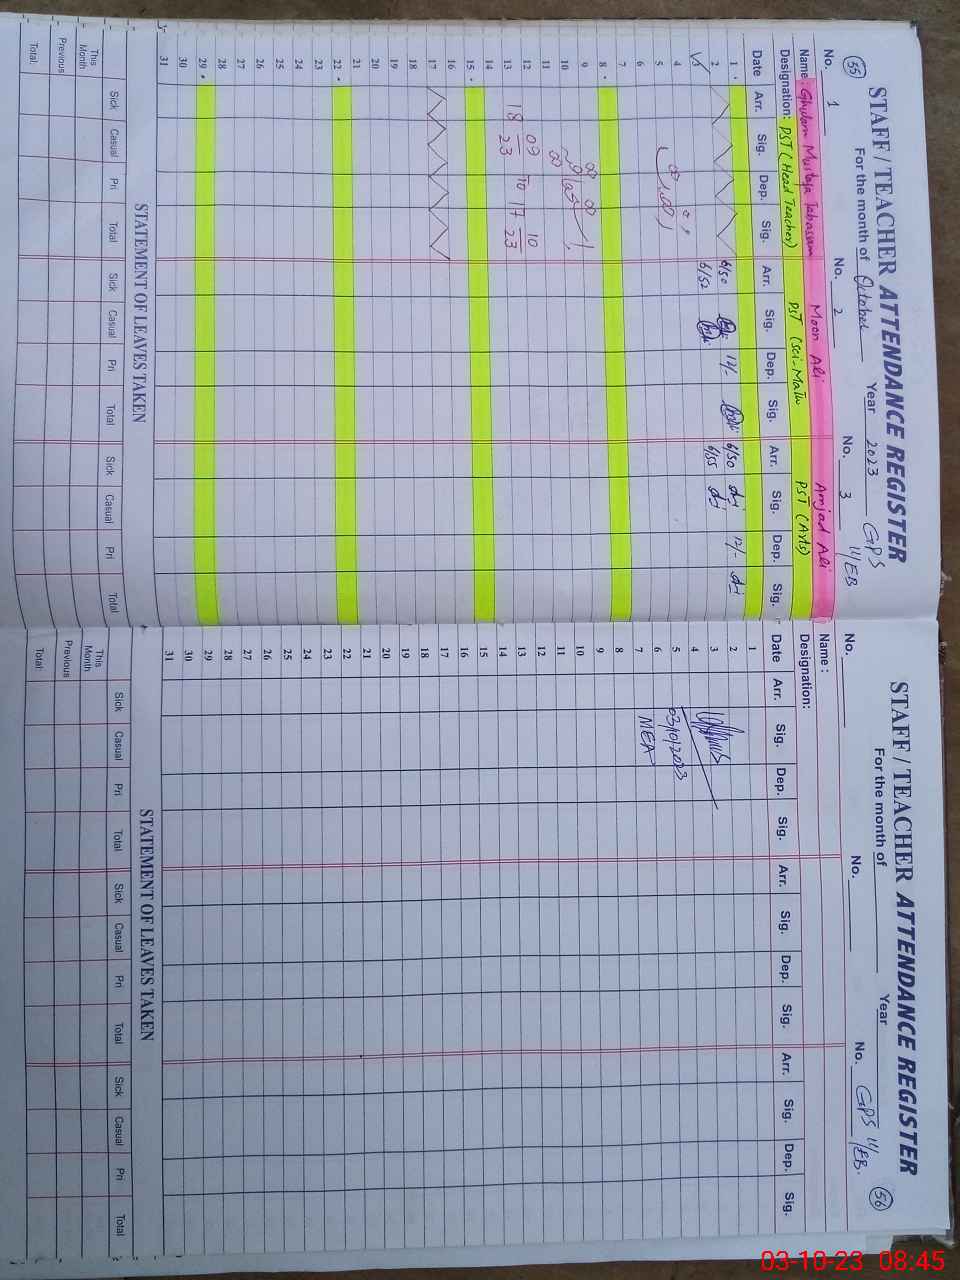 55
STAFF / TEACHER ATTENDANCE REGISTER
For the month of October Year 2023 GPS 111/EB
No. 1 No. 2 No. 3
Name: Ghulam Mustafa Tabassum Moon Ali Amjad Ali
Designation: PST (Head Teacher) PST (Sci-Math) PST (Arts)
Date Arr. Sig. Dep. Sig. Arr. Sig. Dep. Sig. Arr. Sig. Dep. Sig.
1
2 6/50 12/- 6/50 12/-
3 6/52 6/55
4
5
6
7
8
9
10
11
12 09 10
13 18 23 To 17 23
14
15
16
17
18
19
20
21
22
23
24
25
26
27
28
29
30
31
STATEMENT OF LEAVES TAKEN
Sick Casual Pri Total Sick Casual Pri Total Sick Casual Pri Total
This Month
Previous
Total:
STAFF / TEACHER ATTENDANCE REGISTER
56
For the month of Year GPS 11/EB.
No. No. No.
Name :
Designation:
Date Arr. Sig. Dep. Sig. Arr. Sig. Dep. Sig. Arr. Sig. Dep. Sig.
1
2
3
4
5 03/10/2023
6
7 MEA
8
9
10
11
12
13
14
15
16
17
18
19
20
21
22
23
24
25
26
27
28
29
30
31
STATEMENT OF LEAVES TAKEN
Sick Casual Pri Total Sick Casual Pri Total Sick Casual Pri Total
This Month
Previous
Total:
03-10-23 08:45